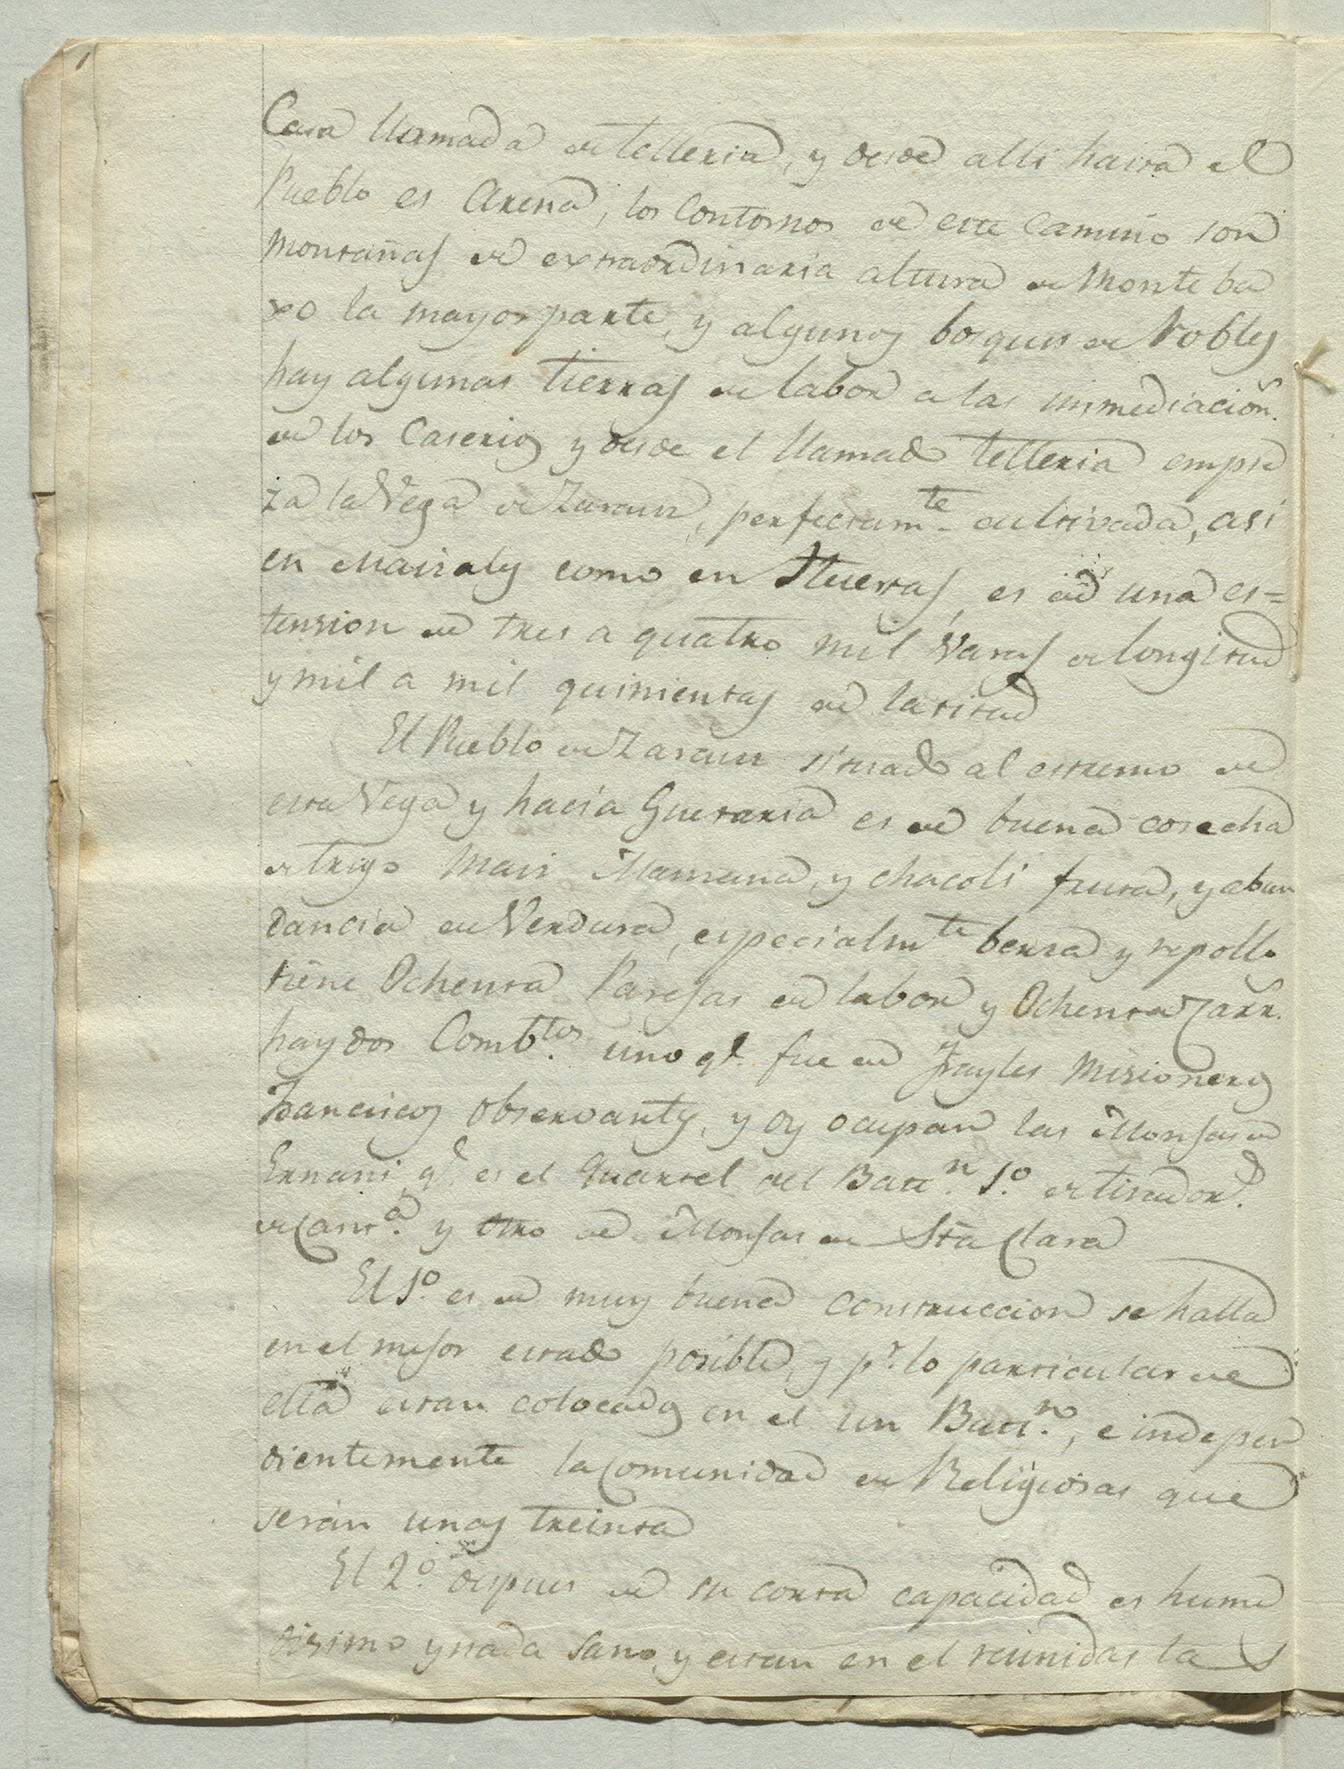 Casa llamada de telleria, y desde alli hasta el
Pueblo es Arena, los Contornos de este Camino son
montañas de extraordinaria altura de Monte ba
xo la mayor parte, y algunos bosques de Robles
hay algunas tierras de labor a las inmediacion.s
de los Caserios y desde el llamado telleria empie
za la Vega de Zarauz, perfectam.te cultivada, asi
en Maizales como en Huertas, es de una es=
tension de tres a quatro mil Varas de longitud
y mil a mil quinientas de latitud
El Pueblo de Zarauz situado al estremo de
esta Vega y hacia Guetaria es de buena cosecha
de trigo Maiz Manzana, y chacoli fruta, y abun
dancia de Verdura, especialm.te berza y repollo
tiene Ochenta Parejas de labor y Ochenta Carr.s
hay dos Comb.tos uno q.e fue de Frayles Misioneros
Franciscos Observantes, y oy ocupan las Monjas de
Ernani q.e es el Quartel del Batt.n 1.o de tirador.s
de Cant.a y otro de Monjas de Sta Clara
El 1.o es de muy buena construccion se halla
en el mejor estado posible, y p.r lo particular de
ella estan colocados en el un Batt.n, e indepen
dientemente la Comunidad de Religiosas que
serán unas treinta
El 2.o despues de su corta capacidad es hume
disimo y nada sano, y estan en el reunidas las